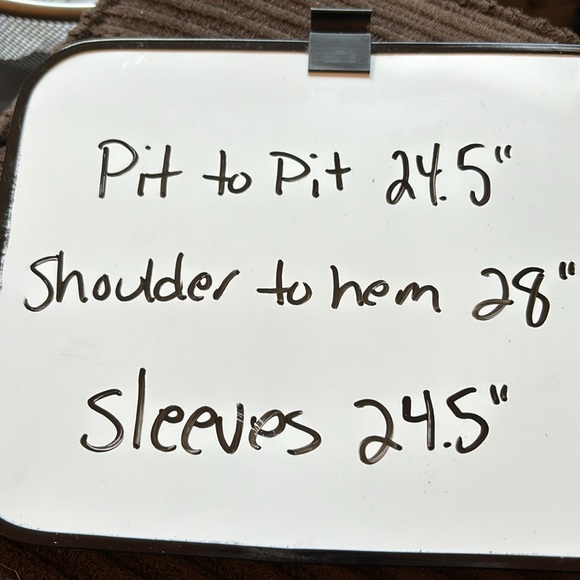 Pit to Pit 24.5"
Shoulder to hem 28"
Sleeves 24.5"